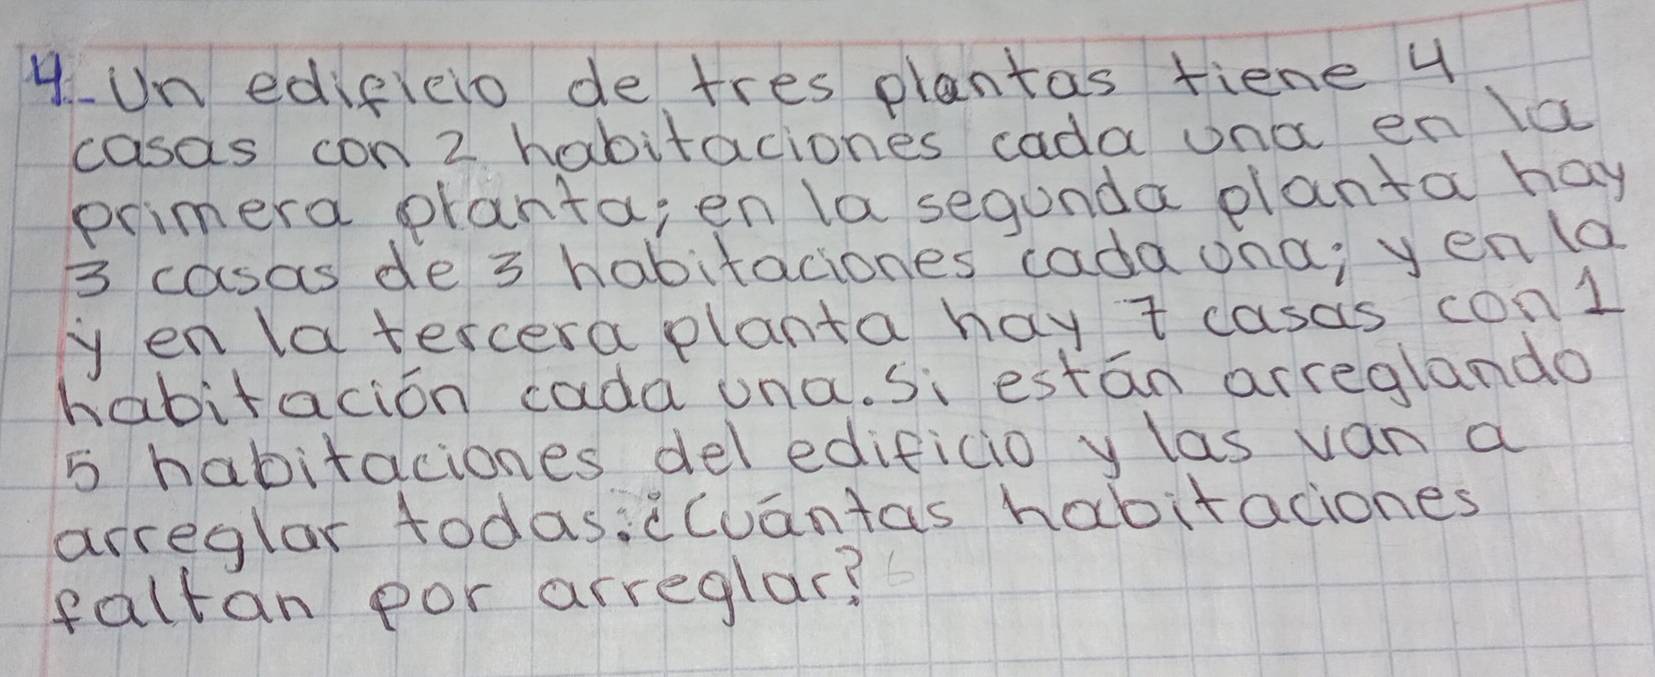 4.- Un edificio de tres plantas tiene 4
casas con 2 habitaciones cada una en la
primera planta; en la segunda planta hay
3 casas de 3 habitaciones cada una; y en la
y en la tercera planta hay 7 casas con 1
habitación cada una. Si están arreglando
5 habitaciones del edificio y las van a
arreglar todas. ¿Cuántas habitaciones
faltan por arreglar?